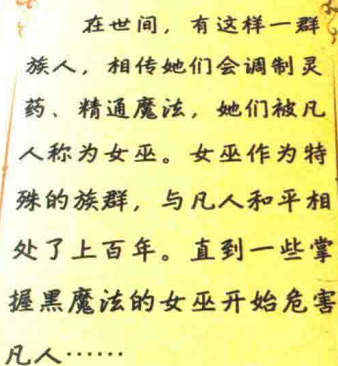 在世间，有这样一群
族人，相传她们会调制灵
药、精通魔法，她们被凡
人称为女巫。女巫作为特
殊的族群，与凡人和平相
处了上百年。直到一些掌
握黑魔法的女巫开始危害
凡人……